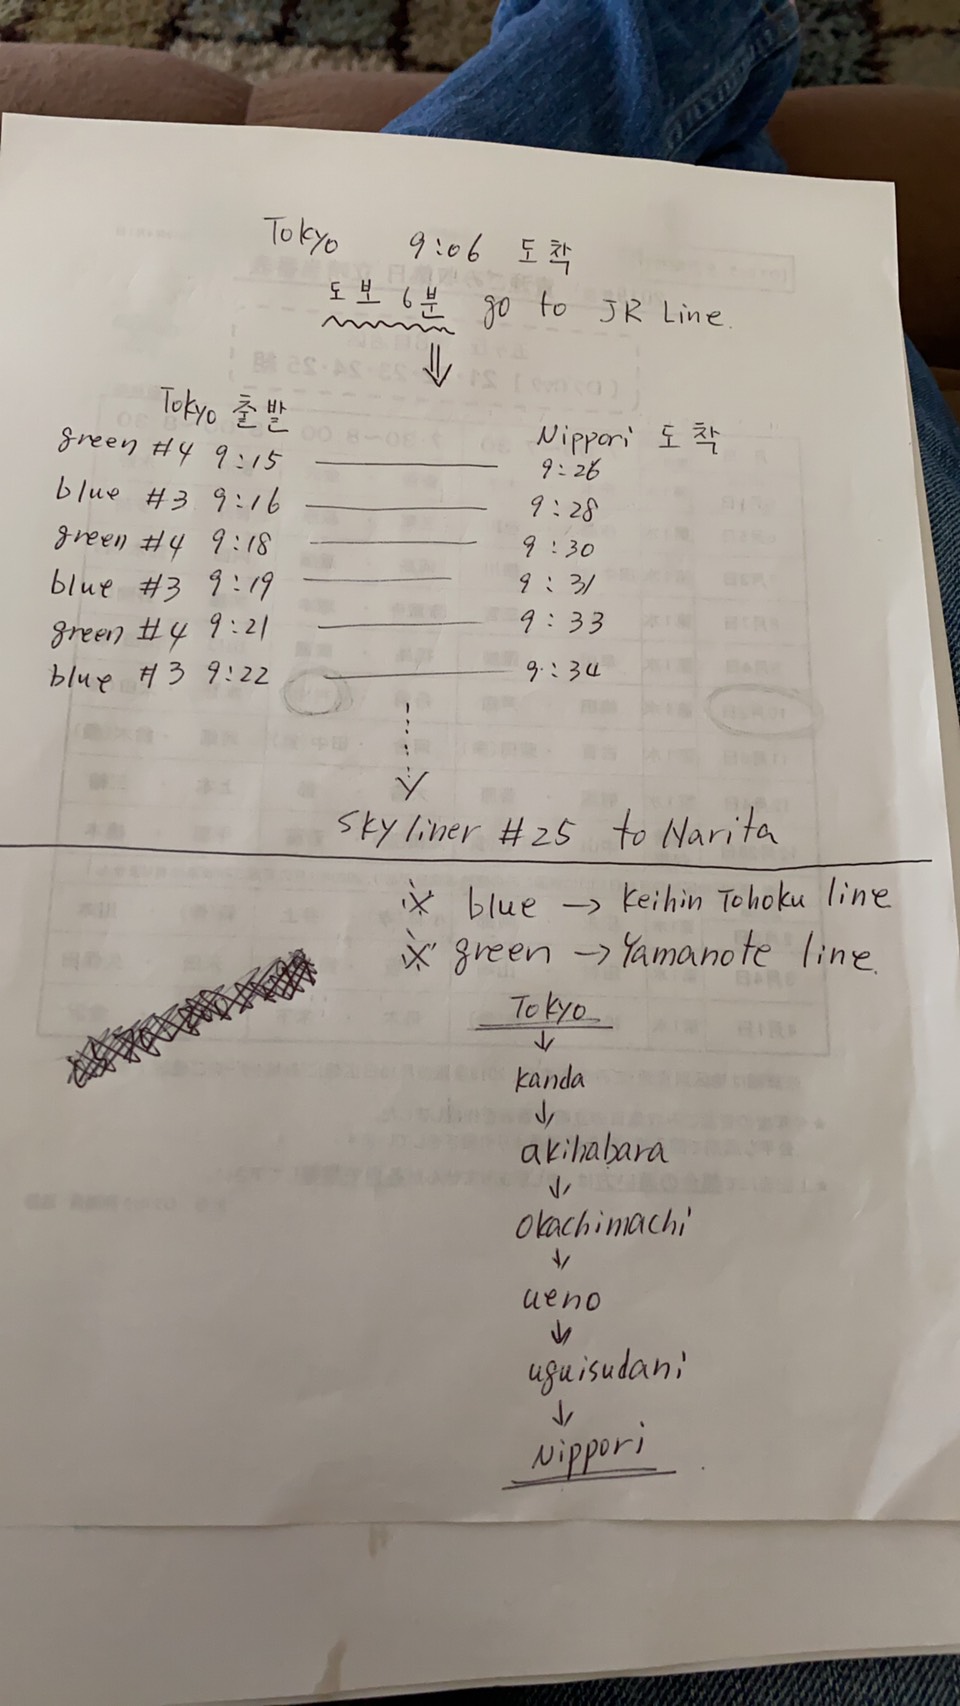 Tokyo 9:06 도착
도보 6분 go to JR Line.
⇓
Tokyo 출발 Nippori 도착
green #4 9:15 ——— 9:26
blue #3 9:16 ——— 9:28
green #4 9:18 ——— 9:30
blue #3 9:19 ——— 9:31
green #4 9:21 ——— 9:33
blue #3 9:22 ——— 9:34
Skyliner #25 to Narita
※ blue → Keihin Tohoku line
※ green → Yamanote line.
Tokyo
↓
kanda
↓
akihabara
↓
okachimachi
↓
ueno
↓
uguisudani
↓
Nippori